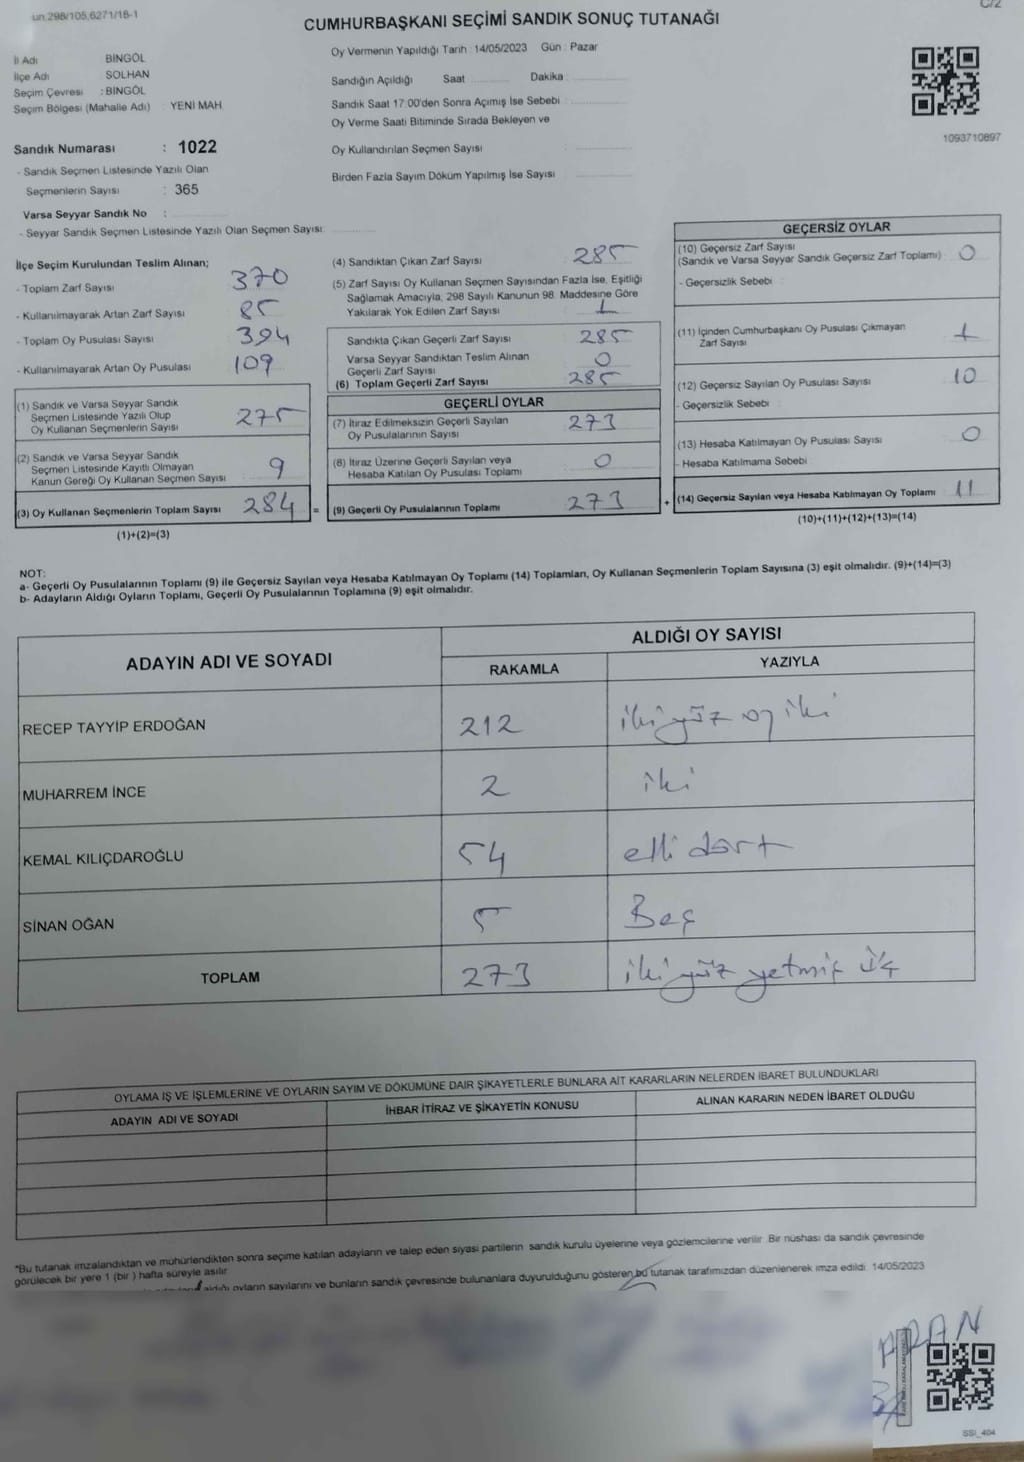 un.298/105,6271/18-1
C/2
CUMHURBAŞKANI SEÇİMİ SANDIK SONUÇ TUTANAĞI
İl Adı BİNGÖL
İlçe Adı SOLHAN
Seçim Çevresi : BİNGÖL
Seçim Bölgesi (Mahalle Adı) : YENİ MAH.
Oy Vermenin Yapıldığı Tarih : 14/05/2023 Gün : Pazar
Sandığın Açıldığı Saat Dakika
Sandık Saat 17:00'den Sonra Açımış İse Sebebi :
Oy Verme Saati Bitiminde Sırada Bekleyen ve
Oy Kullandırılan Seçmen Sayısı :
Birden Fazla Sayım Döküm Yapılmış İse Sayısı :
1093710897
Sandık Numarası : 1022
- Sandık Seçmen Listesinde Yazılı Olan
Seçmenlerin Sayısı : 365
Varsa Seyyar Sandık No :
- Seyyar Sandık Seçmen Listesinde Yazılı Olan Seçmen Sayısı:
İlçe Seçim Kurulundan Teslim Alınan;
- Toplam Zarf Sayısı 370
- Kullanılmayarak Artan Zarf Sayısı 85
- Toplam Oy Pusulası Sayısı 394
- Kullanılmayarak Artan Oy Pusulası 109
(1) Sandık ve Varsa Seyyar Sandık
Seçmen Listesinde Yazılı Olup
Oy Kullanan Seçmenlerin Sayısı 275
(2) Sandık ve Varsa Seyyar Sandık
Seçmen Listesinde Kayıtlı Olmayan
Kanun Gereği Oy Kullanan Seçmen Sayısı 9
(3) Oy Kullanan Seçmenlerin Toplam Sayısı 284 =
(1)+(2)=(3)
(4) Sandıktan Çıkan Zarf Sayısı 285
(5) Zarf Sayısı Oy Kullanan Seçmen Sayısından Fazla İse, Eşitliği
Sağlamak Amacıyla, 298 Sayılı Kanunun 98. Maddesine Göre
Yakılarak Yok Edilen Zarf Sayısı 1
Sandıkta Çıkan Geçerli Zarf Sayısı 285
Varsa Seyyar Sandıktan Teslim Alınan
Geçerli Zarf Sayısı 0
(6) Toplam Geçerli Zarf Sayısı 285
GEÇERLİ OYLAR
(7) İtiraz Edilmeksizin Geçerli Sayılan
Oy Pusulalarının Sayısı 273
(8) İtiraz Üzerine Geçerli Sayılan veya
Hesaba Katılan Oy Pusulası Toplamı 0
(9) Geçerli Oy Pusulalarının Toplamı 273 +
GEÇERSİZ OYLAR
(10) Geçersiz Zarf Sayısı
(Sandık ve Varsa Seyyar Sandık Geçersiz Zarf Toplamı) 0
- Geçersizlik Sebebi :
(11) İçinden Cumhurbaşkanı Oy Pusulası Çıkmayan
Zarf Sayısı 1
(12) Geçersiz Sayılan Oy Pusulası Sayısı 10
- Geçersizlik Sebebi :
(13) Hesaba Katılmayan Oy Pusulası Sayısı 0
- Hesaba Katılmama Sebebi
(14) Geçersiz Sayılan veya Hesaba Katılmayan Oy Toplamı 11
(10)+(11)+(12)+(13)=(14)
NOT:
a- Geçerli Oy Pusulalarının Toplamı (9) ile Geçersiz Sayılan veya Hesaba Katılmayan Oy Toplamı (14) Toplamları, Oy Kullanan Seçmenlerin Toplam Sayısına (3) eşit olmalıdır. (9)+(14)=(3)
b- Adayların Aldığı Oyların Toplamı, Geçerli Oy Pusulalarının Toplamına (9) eşit olmalıdır.
ADAYIN ADI VE SOYADI
ALDIĞI OY SAYISI
RAKAMLA YAZIYLA
RECEP TAYYİP ERDOĞAN 212 ikiyüz on iki
MUHARREM İNCE 2 iki
KEMAL KILIÇDAROĞLU 54 elli dört
SİNAN OĞAN 5 Beş
TOPLAM 273 ikiyüz yetmiş üç
OYLAMA İŞ VE İŞLEMLERİNE VE OYLARIN SAYIM VE DÖKÜMÜNE DAİR ŞİKAYETLERLE BUNLARA AİT KARARLARIN NELERDEN İBARET BULUNDUKLARI
ADAYIN ADI VE SOYADI İHBAR İTİRAZ VE ŞİKAYETİN KONUSU ALINAN KARARIN NEDEN İBARET OLDUĞU
*Bu tutanak imzalandıktan ve mühürlendikten sonra seçime katılan adayların ve talep eden siyasi partilerin sandık kurulu üyelerine veya gözlemcilerine verilir. Bir nüshası da sandık çevresinde
görülecek bir yere 1 (bir) hafta süreyle asılır.
aldığı oyların sayılarını ve bunların sandık çevresinde bulunanlara duyurulduğunu gösteren bu tutanak tarafımızdan düzenlenerek imza edildi. 14/05/2023
ARAN
SSI_404